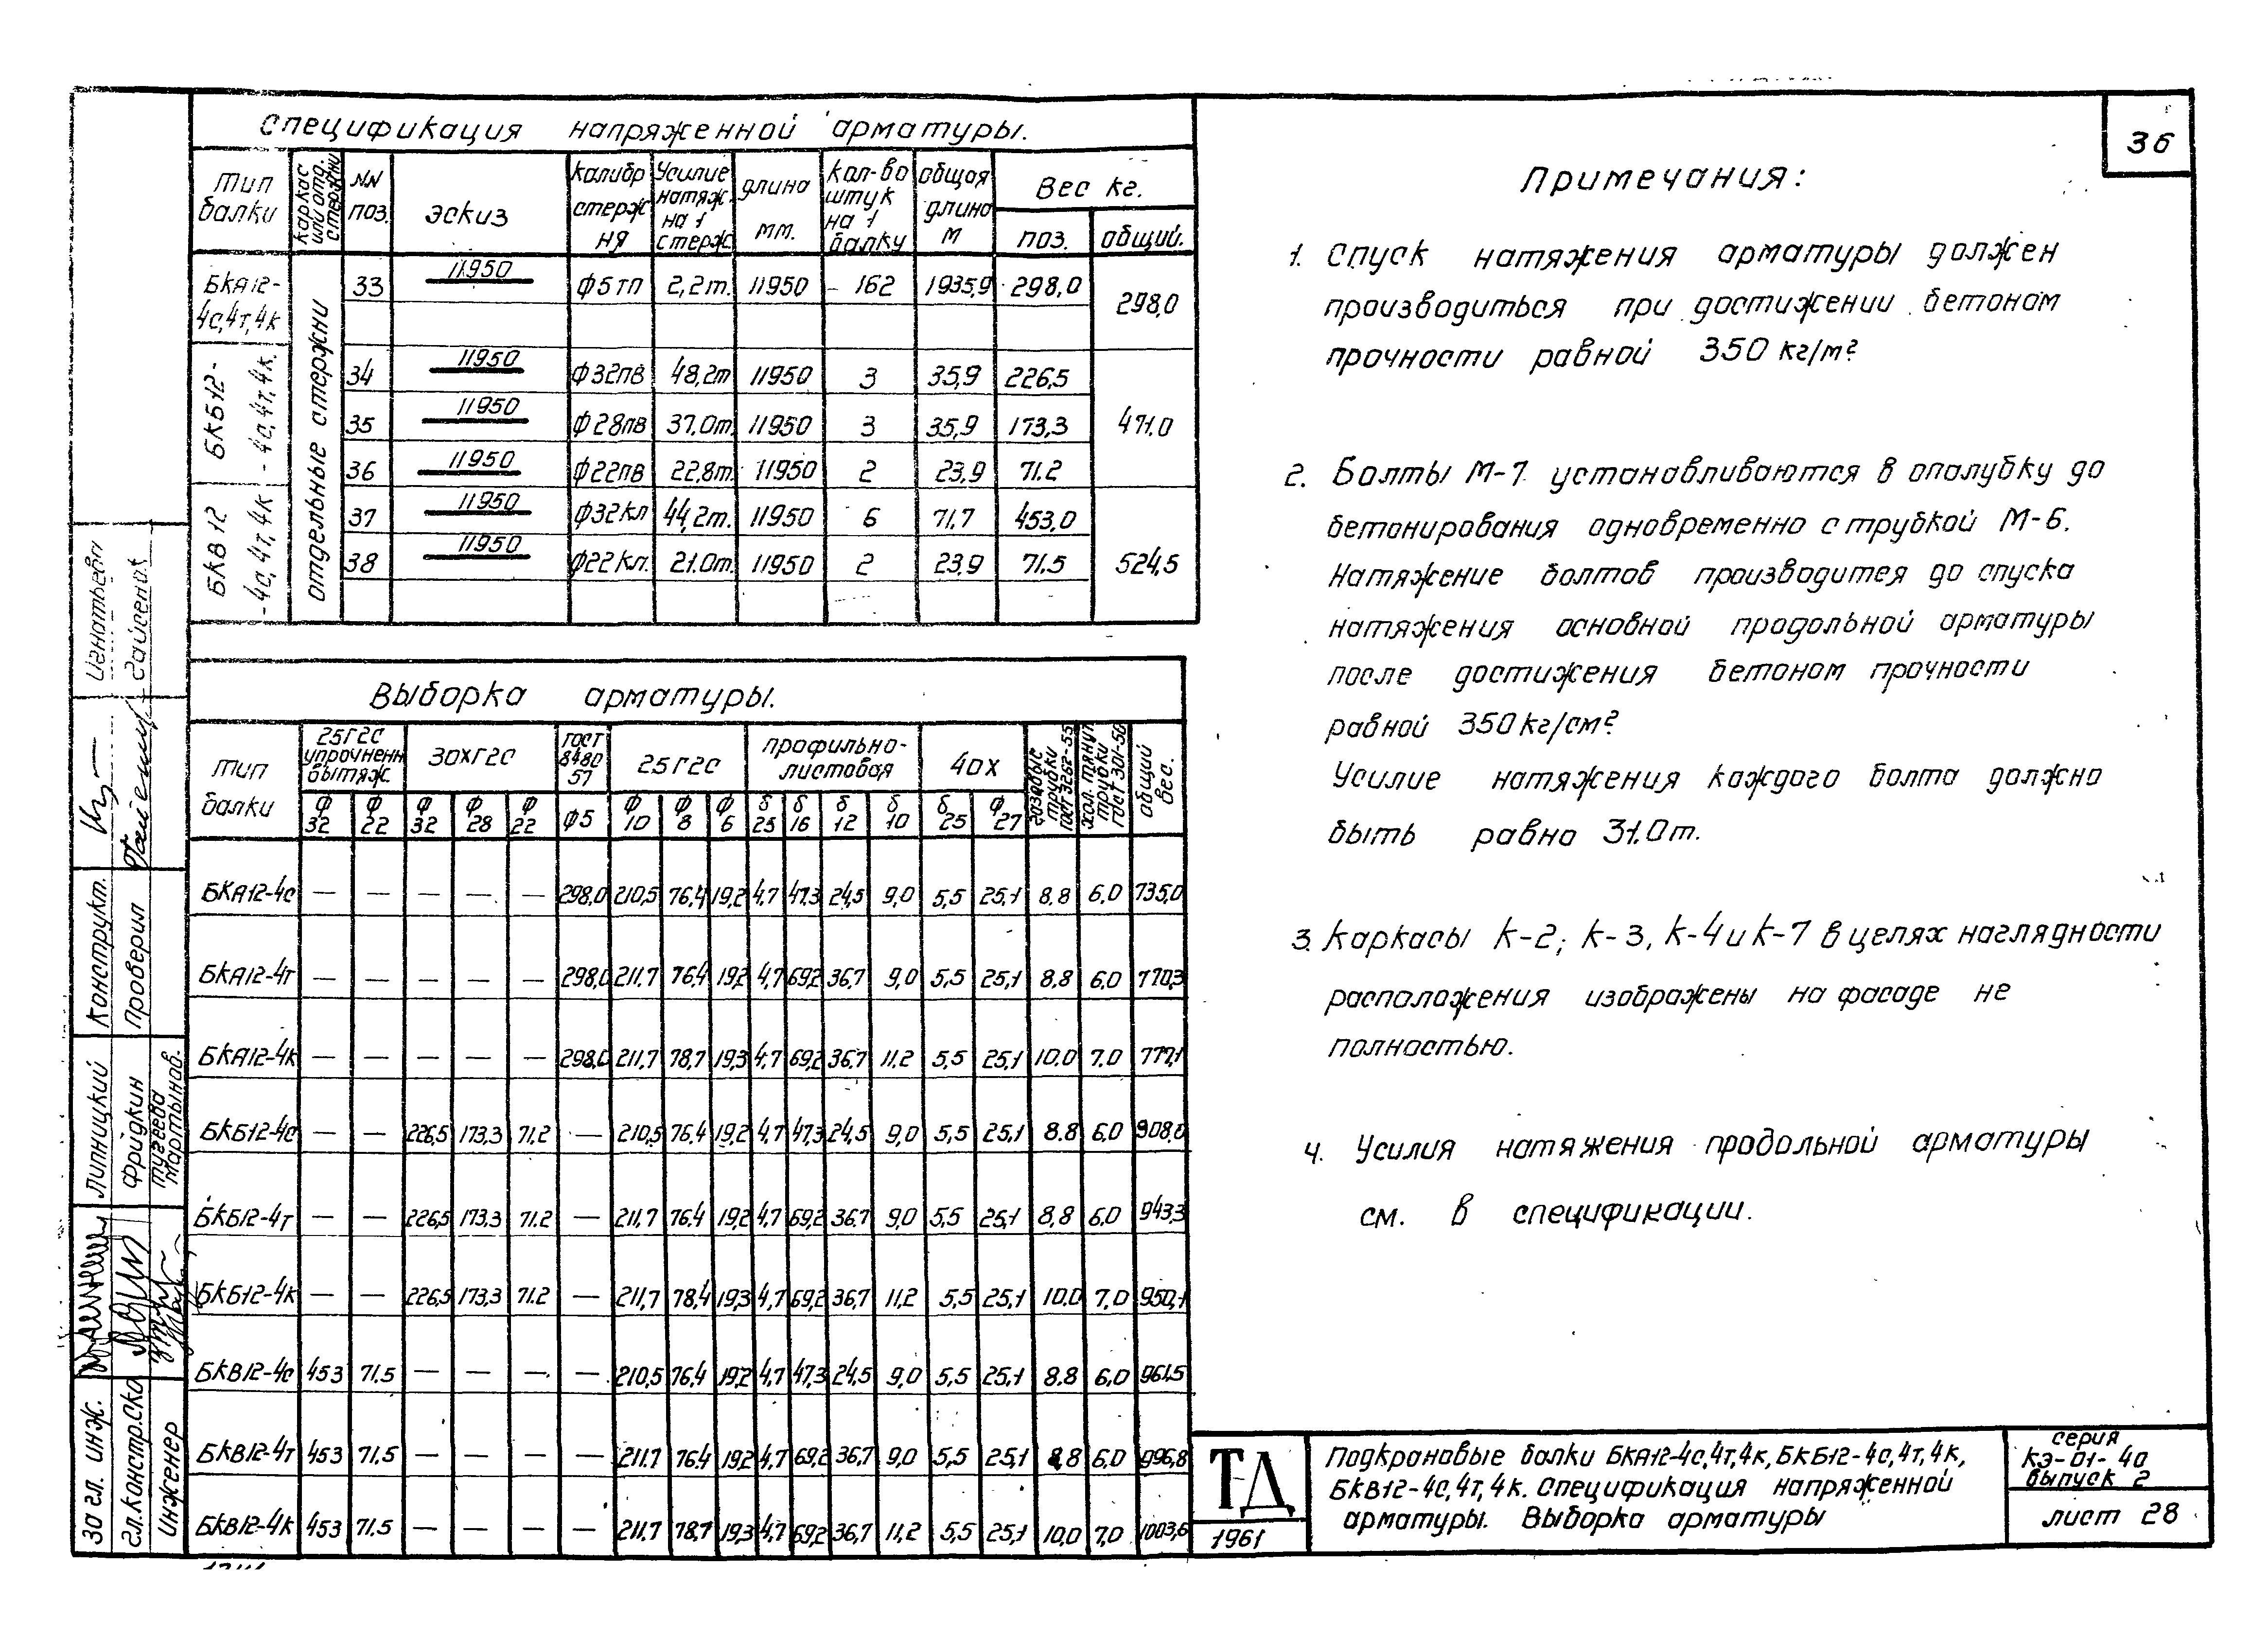 36
Спецификация напряженной арматуры.
Тип балки | каркас или отд. стержни | NN поз. | эскиз | калибр стержня | Усилие натяж. на 1 стерж | длина мм. | кол-во штук на 1 балку | общая длина м | Вес кг. поз. | общий.
БКА12-4с,4т,4к | отдельные стержни | 33 | 11950 | ф5тп | 2,2т. | 11950 | 162 | 1935,9 | 298,0 | 298,0
БКБ12-4с,4т,4к. | 34 | 11950 | ф32пв | 48,2т | 11950 | 3 | 35,9 | 226,5 | 471.0
35 | 11950 | ф28пв | 37.0т. | 11950 | 3 | 35,9 | 173,3
36 | 11950 | ф22пв | 22,8т. | 11950 | 2 | 23,9 | 71.2
БКВ12-4с,4т,4к | 37 | 11950 | ф32кл | 44,2т. | 11950 | 6 | 71,7 | 453,0 | 524,5
38 | 11950 | ф22кл. | 21.0т. | 11950 | 2 | 23,9 | 71.5
Выборка арматуры.
тип балки | 25Г2С упрочненн вытяж. | 30ХГ2С | ГОСТ 8480 57 | 25Г2С | профильно-листовая | 40Х | газовые трубки ГОСТ 3262-55 | хол. тянут трубки ГОСТ 301-50 | общий вес.
ф32 | ф22 | ф32 | ф28 | ф22 | ф5 | ф10 | ф8 | ф6 | δ25 | δ16 | δ12 | δ10 | δ25 | ф27
БКА12-4с | — | — | — | — | — | 298,0 | 210,5 | 76,4 | 19,2 | 4,7 | 47,3 | 24,5 | 9,0 | 5,5 | 25,1 | 8.8 | 6.0 | 735,0
БКА12-4т | — | — | — | — | — | 298,0 | 211.7 | 76.4 | 19,2 | 4,7 | 69,2 | 36.7 | 9,0 | 5,5 | 25,1 | 8.8 | 6.0 | 770,3
БКА12-4к | — | — | — | — | — | 298,0 | 211,7 | 78,7 | 19,3 | 4,7 | 69,2 | 36,7 | 11,2 | 5,5 | 25,1 | 10.0 | 7.0 | 777,1
БКБ12-4с | — | — | 226,5 | 173,3 | 71,2 | — | 210,5 | 76.4 | 19,2 | 4,7 | 47,3 | 24,5 | 9,0 | 5,5 | 25,1 | 8.8 | 6,0 | 908,0
БКБ12-4т | — | — | 226,5 | 173,3 | 71.2 | — | 211,7 | 76.4 | 19,2 | 4,7 | 69,2 | 36.7 | 9,0 | 5,5 | 25,1 | 8,8 | 6.0 | 943,3
БКБ12-4к | — | — | 226,5 | 173,3 | 71.2 | — | 211,7 | 78,4 | 19,3 | 4,7 | 69,2 | 36,7 | 11,2 | 5,5 | 25,1 | 10,0 | 7,0 | 950,1
БКВ12-4с | 453 | 71.5 | — | — | — | — | 210,5 | 76,4 | 19,2 | 4,7 | 47,3 | 24,5 | 9,0 | 5,5 | 25,1 | 8.8 | 6,0 | 961,5
БКВ12-4т | 453 | 71,5 | — | — | — | — | 211.7 | 76.4 | 19,2 | 4,7 | 69,2 | 36,7 | 9,0 | 5,5 | 25,1 | 8,8 | 6.0 | 996,8
БКВ12-4к | 453 | 71.5 | — | — | — | — | 211.7 | 78,7 | 19,3 | 4,7 | 69,2 | 36,7 | 11,2 | 5,5 | 25,1 | 10,0 | 7,0 | 1003,6
Примечания:
1. Спуск натяжения арматуры должен
производиться при достижении бетоном
прочности равной 350 кг/м²
2. Болты М-7 устанавливаются в опалубку до
бетонирования одновременно с трубкой М-6.
Натяжение болтов производится до спуска
натяжения основной продольной арматуры
после достижения бетоном прочности
равной 350 кг/см²
Усилие натяжения каждого болта должно
быть равно 31.0т.
3. Каркасы К-2; К-3, К-4 и К-7 в целях наглядности
расположения изображены на фасаде не
полностью.
4. Усилия натяжения продольной арматуры
см. в спецификации.
ТД
1961
Подкрановые балки БКА12-4с,4т,4к, БКБ12-4с,4т,4к,
БКВ12-4с,4т,4к. Спецификация напряженной
арматуры. Выборка арматуры
серия
КЭ-01-40
выпуск 2
лист 28
Конструкт. Игнатьева
Проверил
За гл. инж. Липницкий
Гл. констр. СКО Фридкин
Инженер